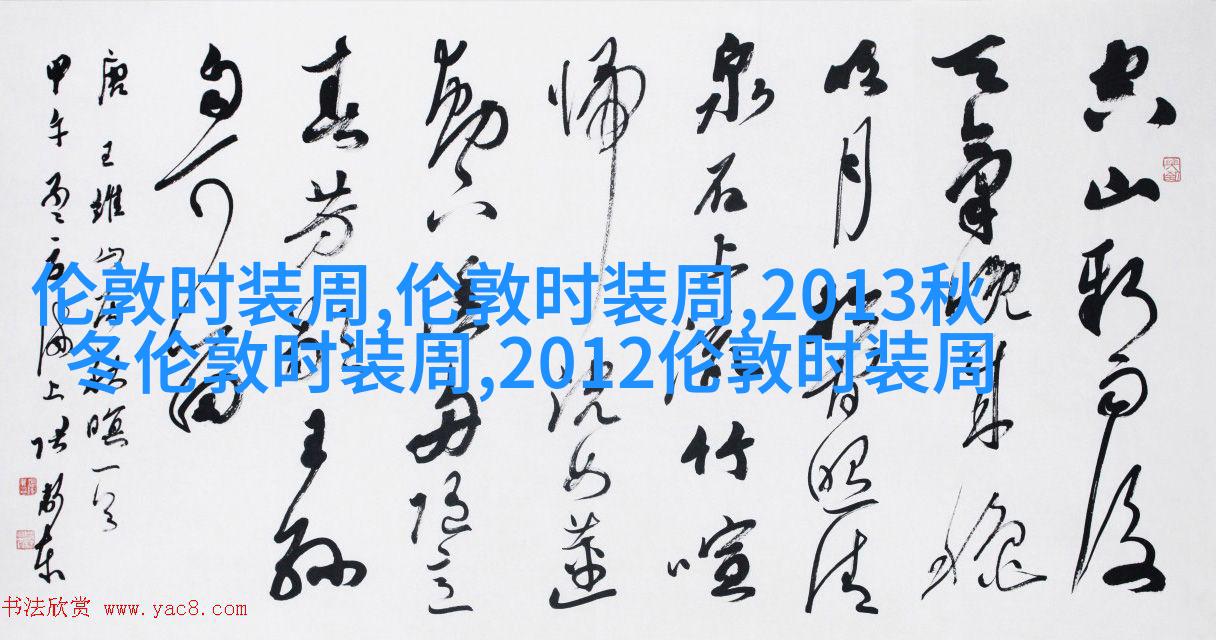 空山新雨後
天氣晚來秋
明月松間照清
泉石上流竹喧
歸浣女蓮
動下漁舟隨意
春芳歇王孫
自可留
唐 王維山居秋暝一首
甲午
海上
伦敦时装周,伦敦时装周,2013秋
冬伦敦时装周,2012伦敦时装周
书法欣赏 www.yac8.com